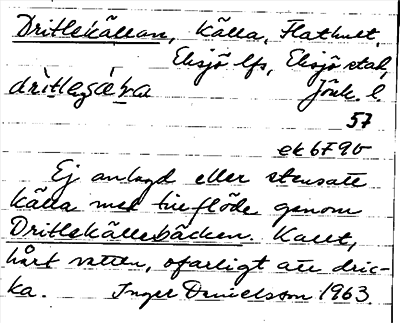 Dritlekällan, Källa, Flathult,
Eksjö lfs, Eksjö stad,
Jönk. l.
57
ek 6790
Ej anlagd eller stensatt
källa med tillflöde genom
Dritlekällebäcken. Kallt,
hårt vatten, ofarligt att dric-
ka. Inger Danielsson 1963